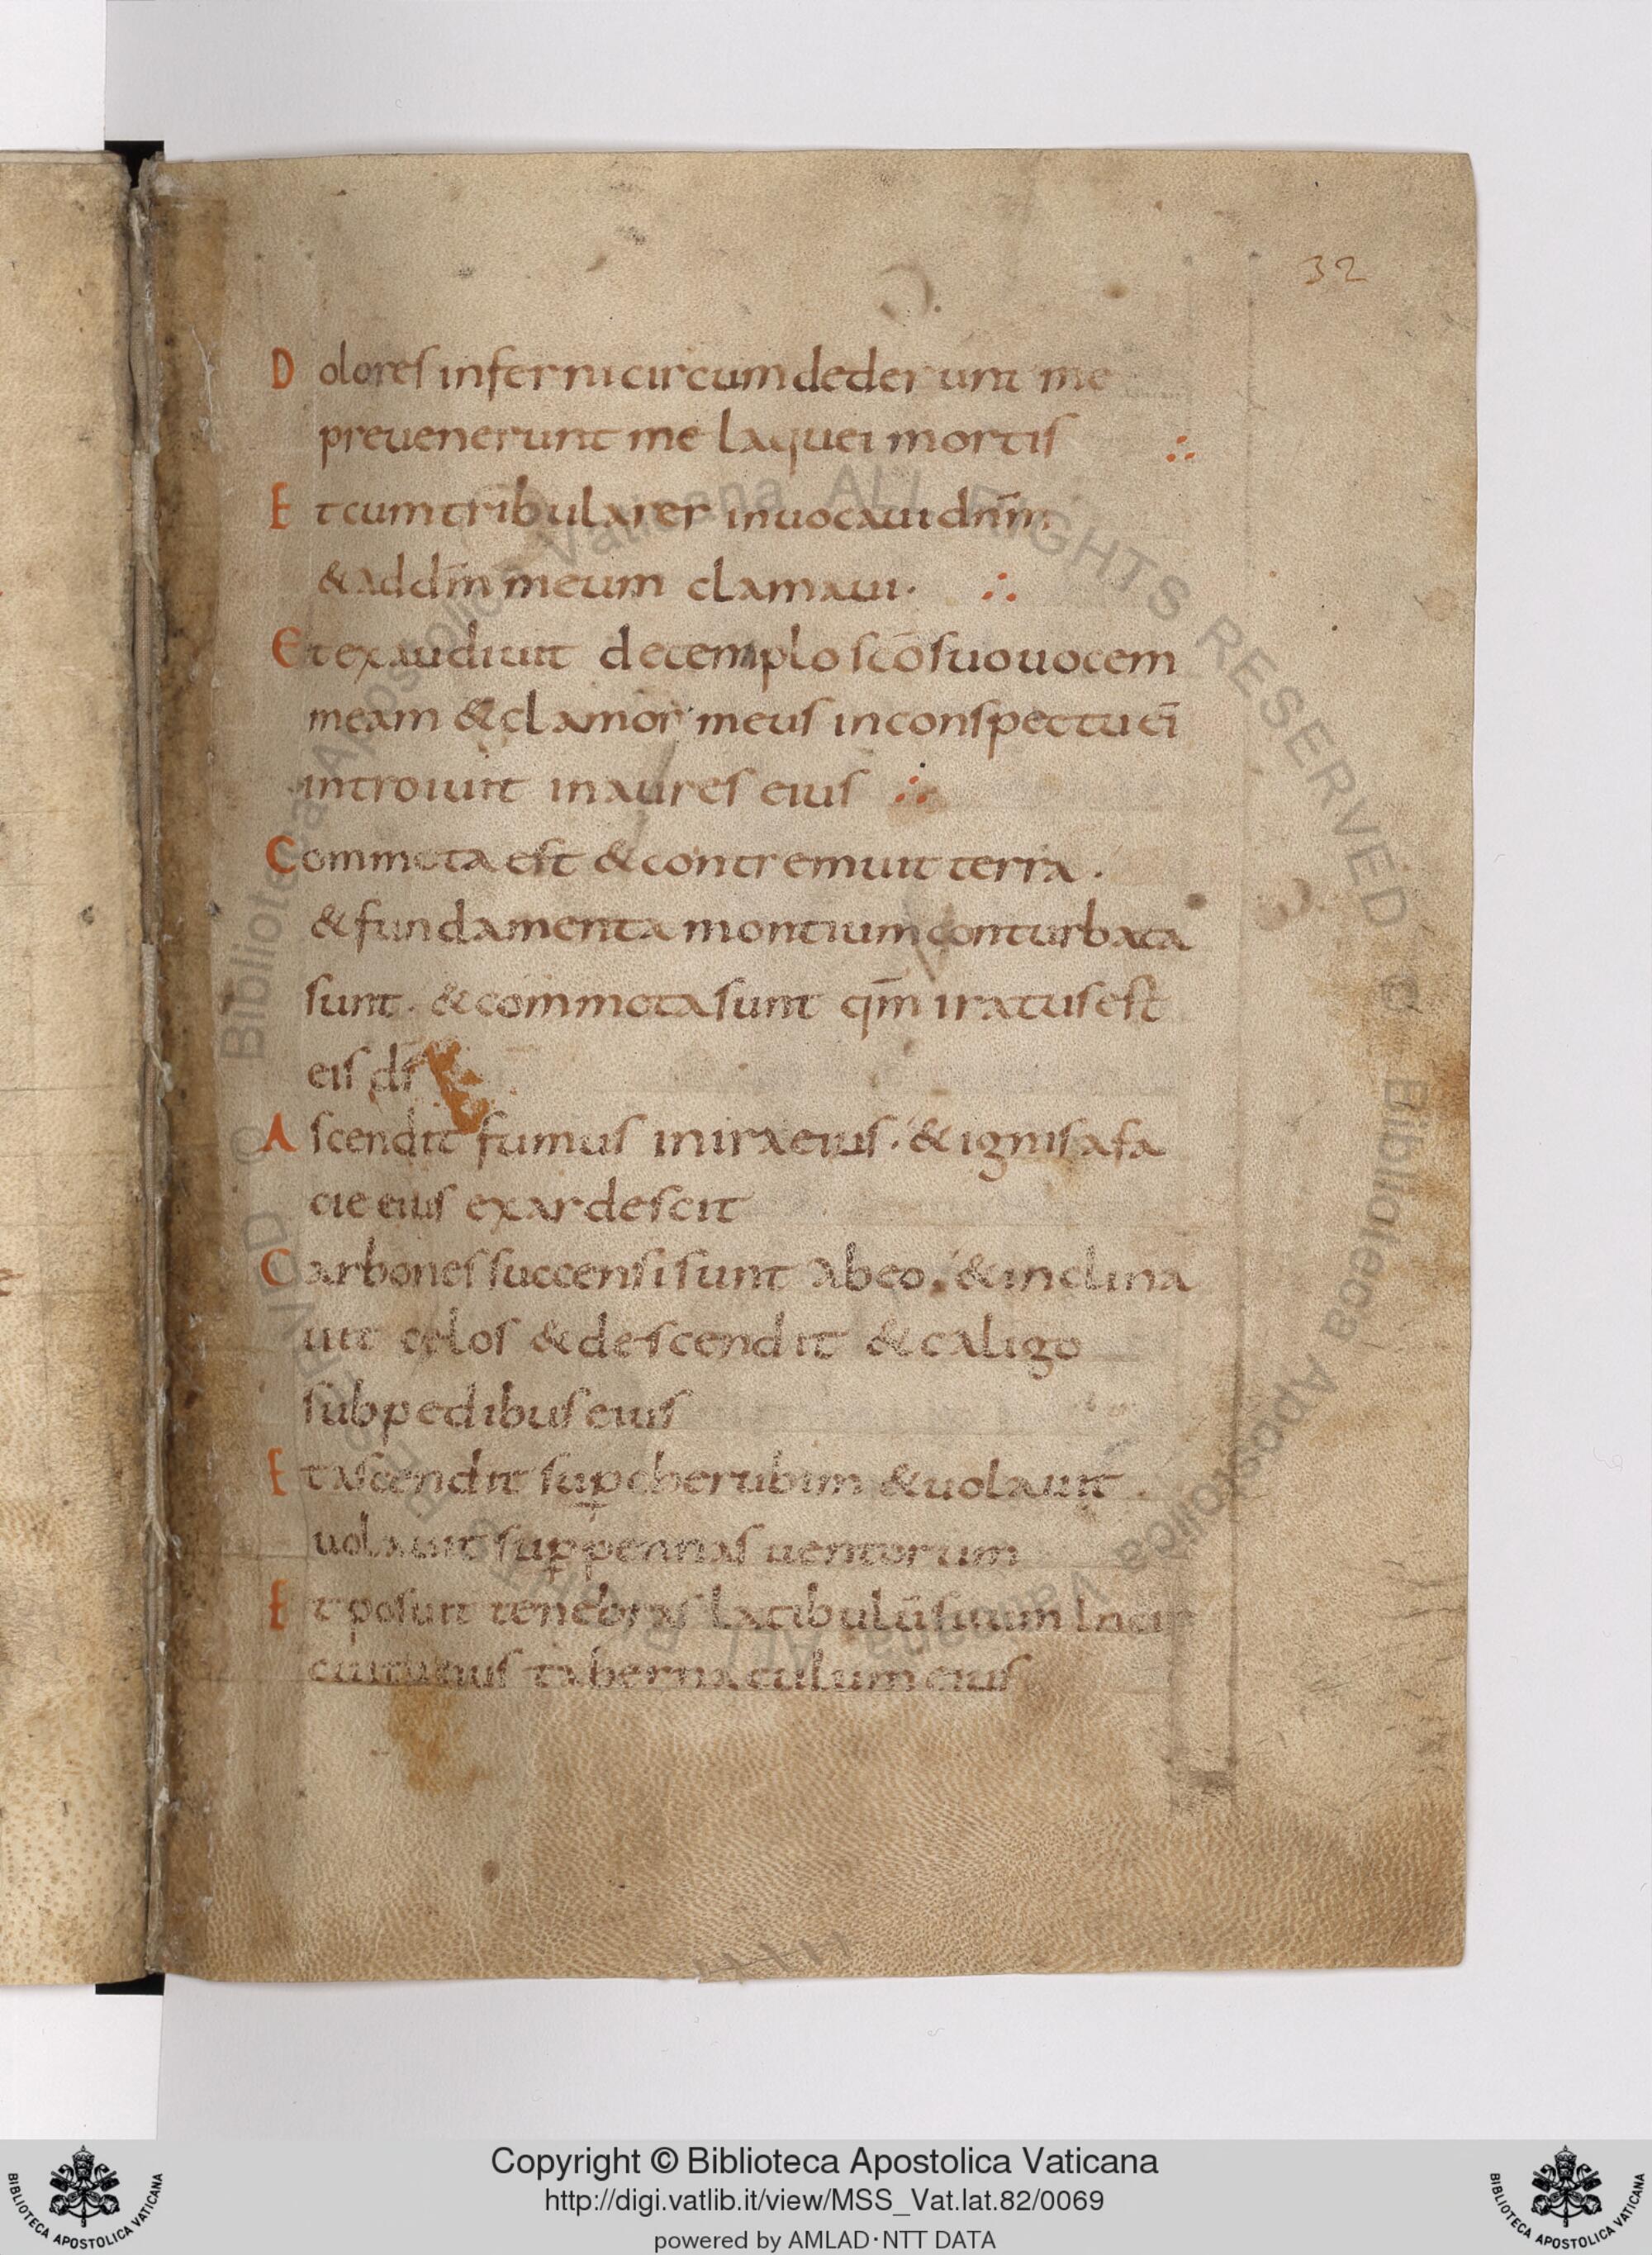 32
Dolores inferni circumdederunt me
preuenerunt me laquei mortis ∴
Et cum tribularer inuocaui dñm
& ad dm̄ meum clamaui · ∴
Et exaudiuit de templo scō suo uocem
meam & clamor meus in conspectu ei̅
introiuit in aures eius ∴
Commota est & contremuit terra .
& fundamenta montium conturbata
sunt . & commota sunt qm̄ iratus est
eis ds̄
Ascendit fumus in ira eius . & ignis a fa
cie eius exardescit
Carbones succensi sunt ab eo . & inclina
uit cęlos & descendit & caligo
sub pedibus eius
Et ascendit sup̱ cherubim & uolauit .
uolauit sup̱ pennas uentorum
Et posuit tenebras latibulū suum In cir
eius tabernaculum eius
Biblioteca Apostolica Vaticana ALL RIGHTS RESERVED ©
Copyright © Biblioteca Apostolica Vaticana
http://digi.vatlib.it/view/MSS_Vat.lat.82/0069
powered by AMLAD·NTT DATA
BIBLIOTECA APOSTOLICA VATICANA
BIBLIOTECA APOSTOLICA VATICANA